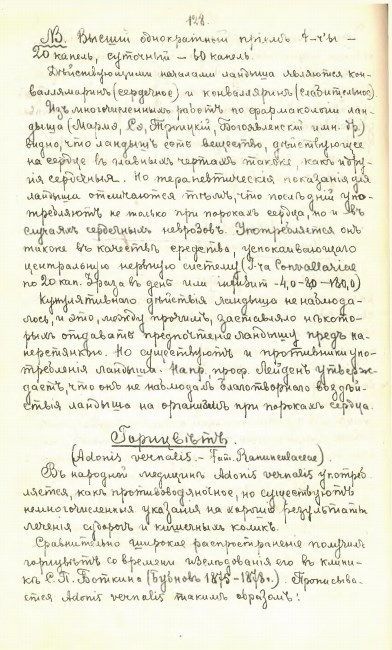 128.
NB. Высшій однократный пріемъ t-r'ы —
20 капель, суточный — 60 капель.
Дѣйствующими началами ландыша являются кон-
валлямаринъ (сердечное) и конвалляринъ (слабительное).
Изъ многочисленныхъ работъ по фармакологіи лан-
дыша (Мармэ, Сэ, Троицкій, Богоявленскій и мн. др.)
видно, что ландышъ есть вещество, дѣйствующее
на сердце въ главныхъ чертахъ также, какъ и дру-
гія сердечныя. Но терапевтическія показанія для
ландыша отличаются тѣмъ, что послѣдній упо-
требляютъ не только при порокахъ сердца, но и въ
случаяхъ сердечныхъ неврозовъ. Употребляется онъ
также въ качествѣ средства, успокаивающаго
центральную нервную систему (T-ra Convallariae
по 20 кап. 3 раза въ день или infusum - 4,0-8,0-180,0)
Кумулятивнаго дѣйствія ландыша не наблюда-
лось, и это, между прочимъ, заставляло нѣкото-
рыхъ отдавать предпочтеніе ландышу предъ на-
перстянкою. Но существуютъ и противники упо-
требленія ландыша. Напр. проф. Лейденъ утверж-
даетъ, что онъ не наблюдалъ благотворнаго воздѣй-
ствія ландыша на организмъ при порокахъ сердца.
Горицвѣтъ.
(Adonis vernalis. - Fam. Ranunculaceae).
Въ народной медицинѣ Adonis vernalis употреб-
ляется, какъ противоводяночное, но существуютъ
немногочисленныя указанія на хорошіе результаты
леченія судорогъ и кишечныхъ коликъ.
Сравнительно широкое распространеніе получилъ
горицвѣтъ со времени изслѣдованія его въ клини-
кѣ С. П. Боткина (Бубновъ 1875-1878 г.). Прописыва-
ется Adonis vernalis такимъ образомъ: